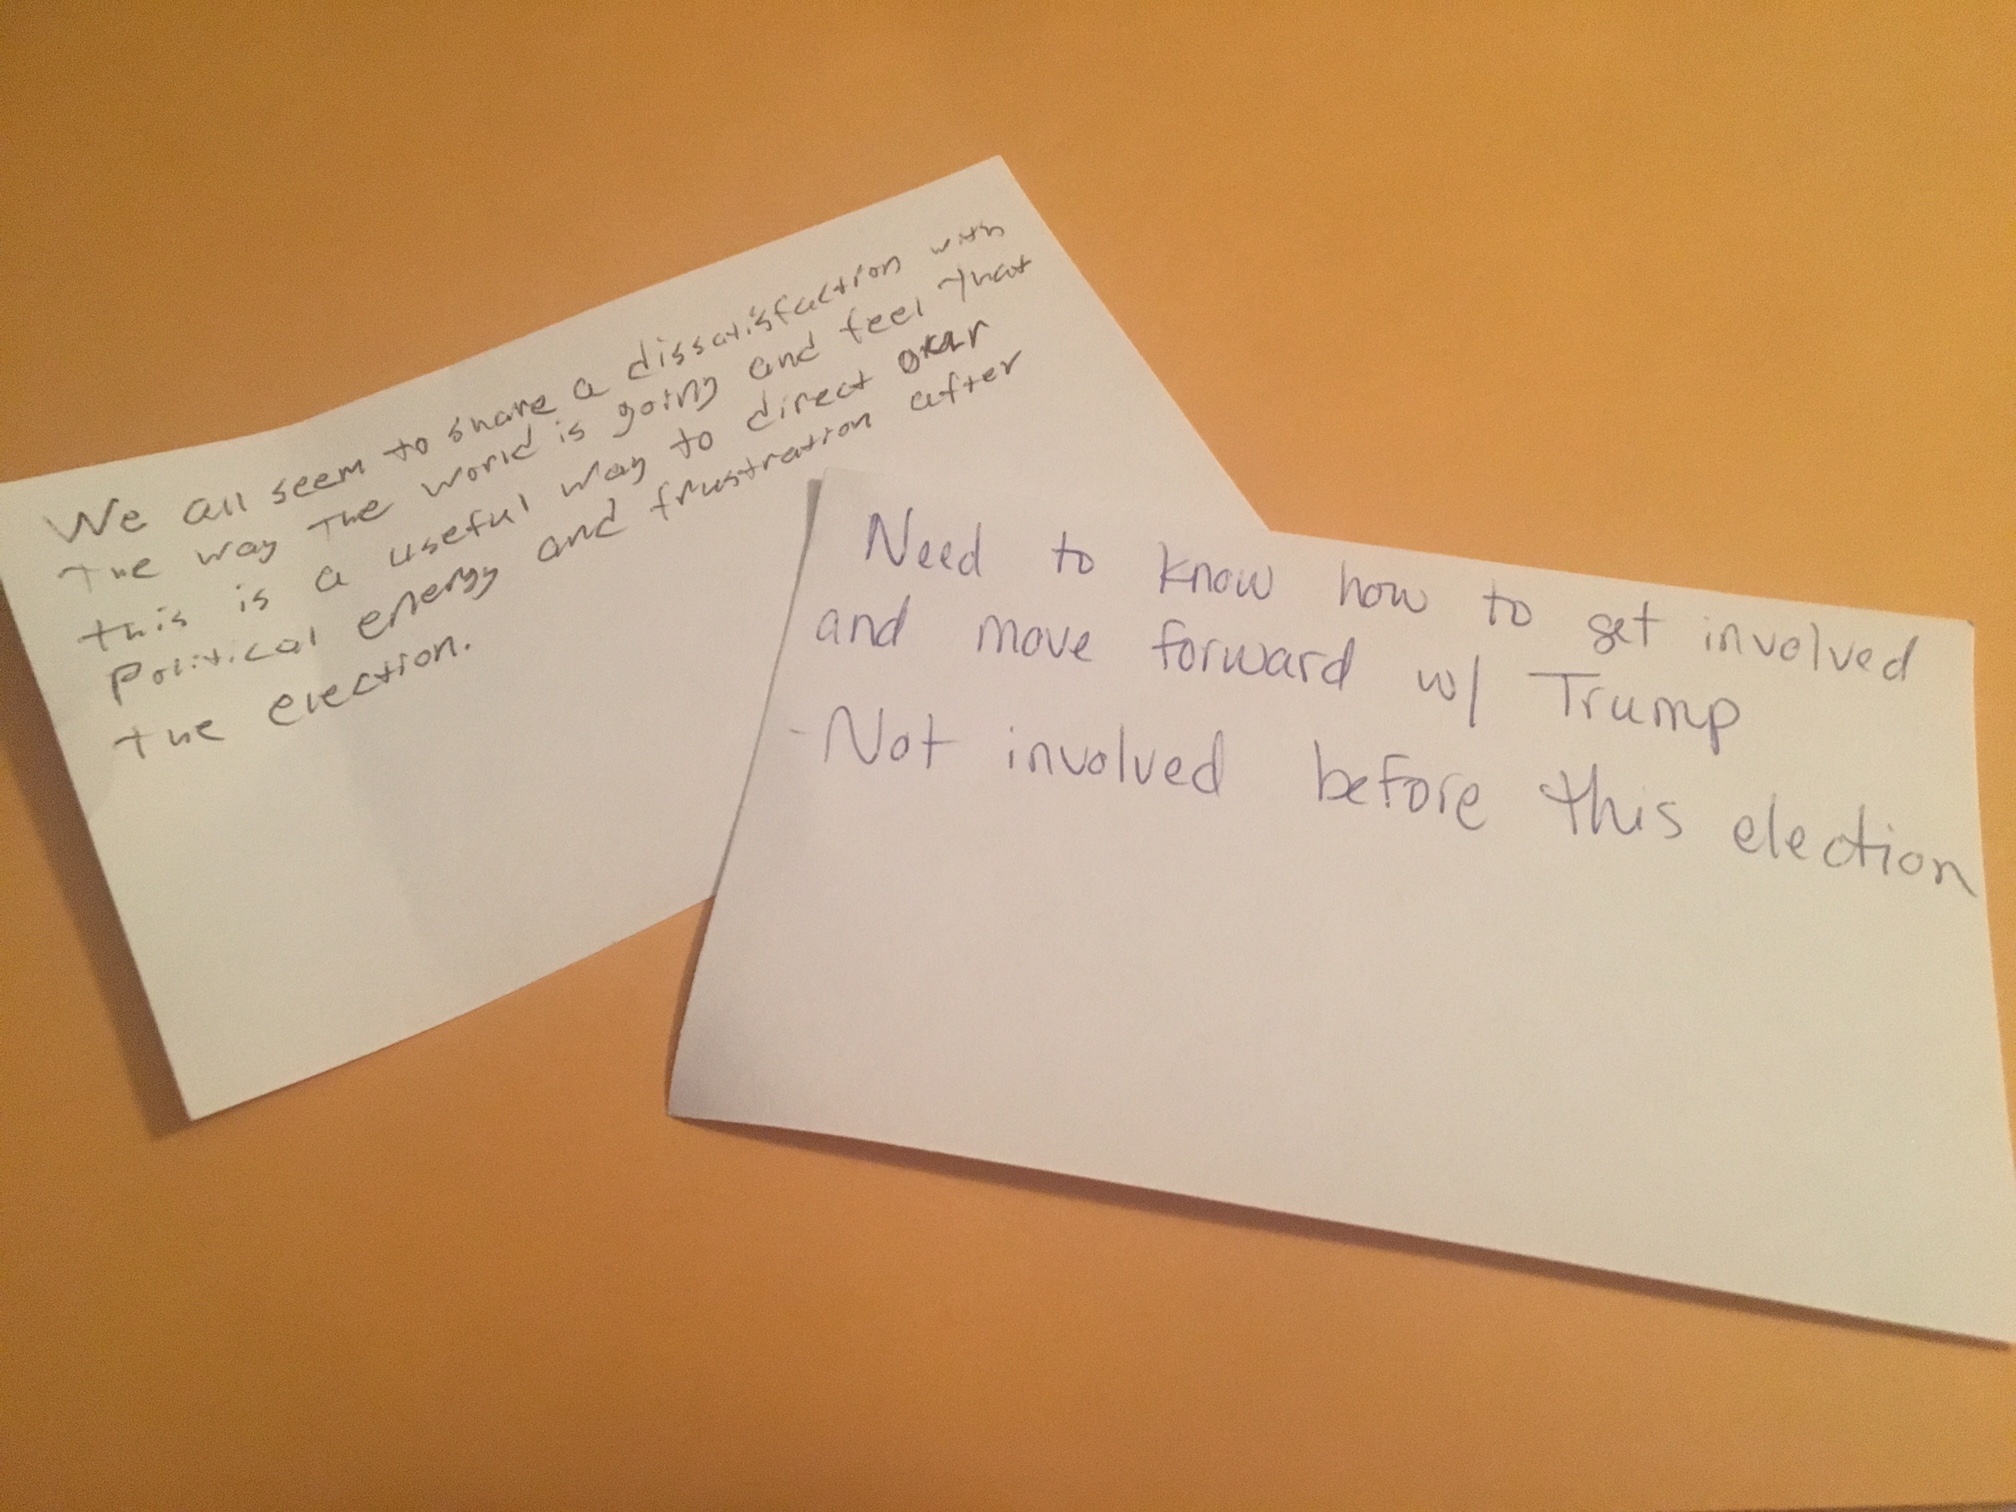 We all seem to share a dissatisfaction with
the way the world is going and feel that
this is a useful way to direct our
political energy and frustration after
the election.
Need to know how to get involved
and move forward w/ Trump
-Not involved before this election